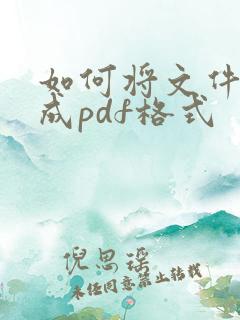 如何将文件
成pdf格式
倪思瑶
未经同意禁止转载